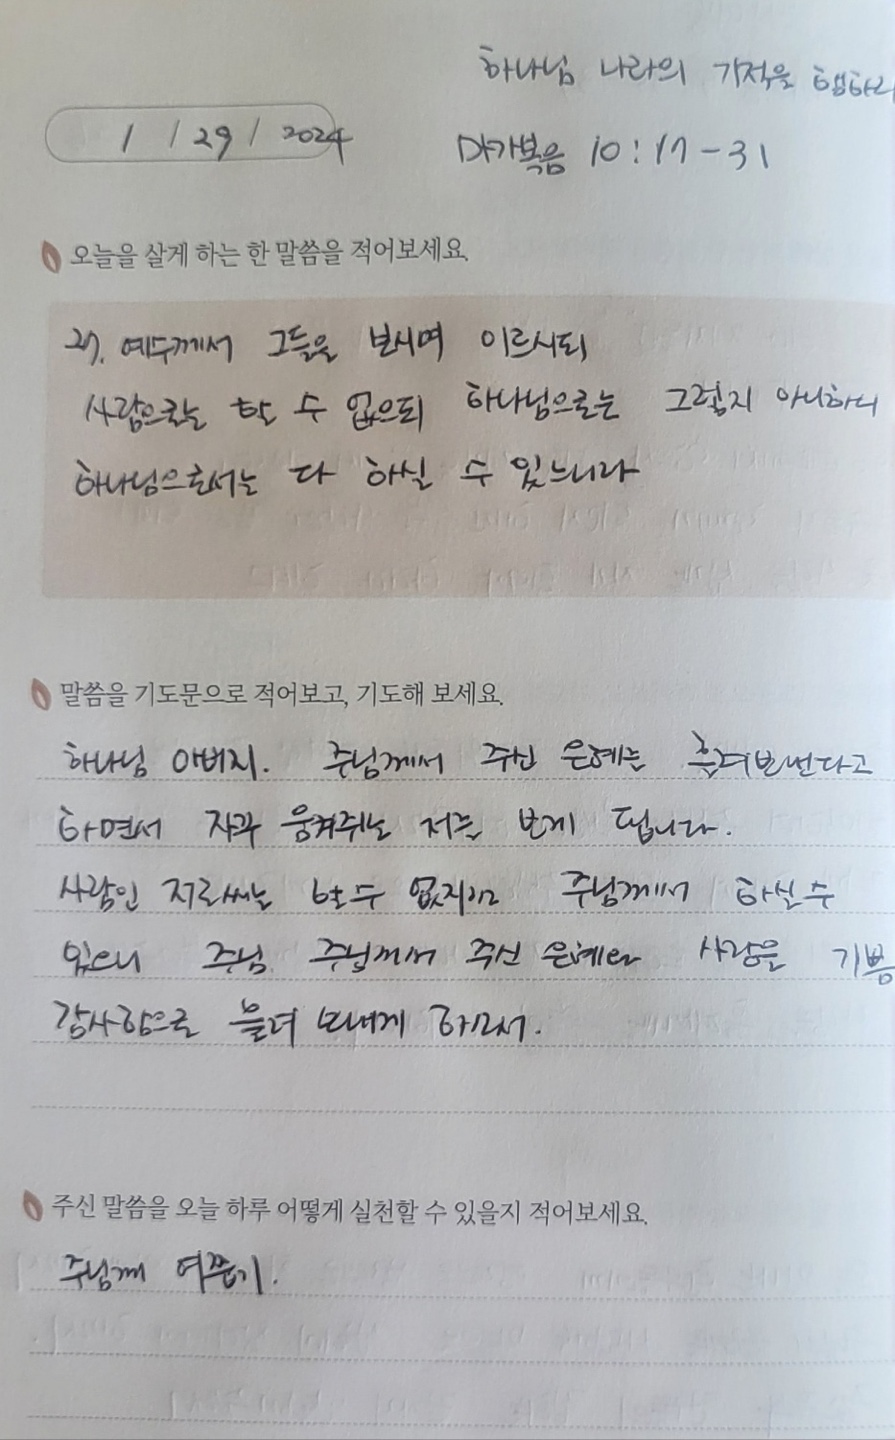 하나님 나라의 기적을 행하라
1 / 29 / 2024
마가복음 10:17-31
오늘을 살게 하는 한 말씀을 적어보세요.
27. 예수께서 그들을 보시며 이르시되
사람으로는 할 수 없으되 하나님으로는 그렇지 아니하니
하나님으로서는 다 하실 수 있느니라
말씀을 기도문으로 적어보고, 기도해 보세요.
하나님 아버지. 주님께서 주신 은혜는 흘려보낸다고
하면서 자꾸 움켜쥐는 저를 보게 됩니다.
사람인 저로써는 할 수 없지만 주님께서 하실 수
있으니 주님 주님께서 주신 은혜와 사랑을 기쁨
감사함으로 흘려 보내게 하소서.
주신 말씀을 오늘 하루 어떻게 실천할 수 있을지 적어보세요.
주님께 여쭙기.